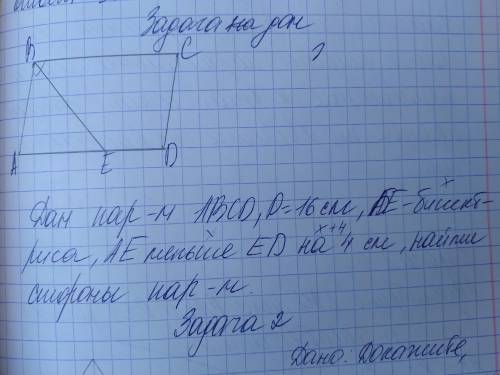 Задача на дом
B C
A E D
Дан пар-м ABCD, P=16 см, BE-бисект-
x x+4
риса, AE меньше ED на 4 см, найти
стороны пар-м.
Задача 2
Дано: Докажите,